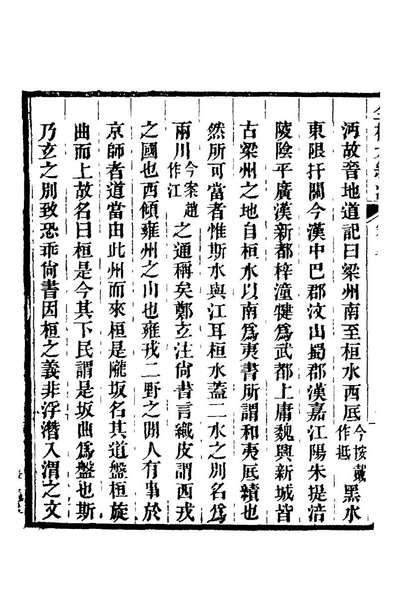 沔故晉地道記曰梁州南至桓水西厎今按戴作抵黑水
東限扞關今漢中巴郡汶山蜀郡漢嘉江陽朱提涪
陵陰平廣漢新都梓潼犍爲武都上庸魏興新城皆
古梁州之地自桓水以南爲夷書所謂和夷厎績也
然所可當者惟斯水與江耳桓水蓋二水之別名爲
兩川今案趙作江之通稱矣鄭玄注尙書言織皮謂西戎
之國也西傾雍州之山也雍戎二野之閒人有事於
京師者道當由此州而來桓是隴坂名其道盤桓旋
曲而上故名曰桓是今其下民謂是坂曲爲盤也斯
乃玄之別致恐乖尙書因桓之義非浮潛入渭之文